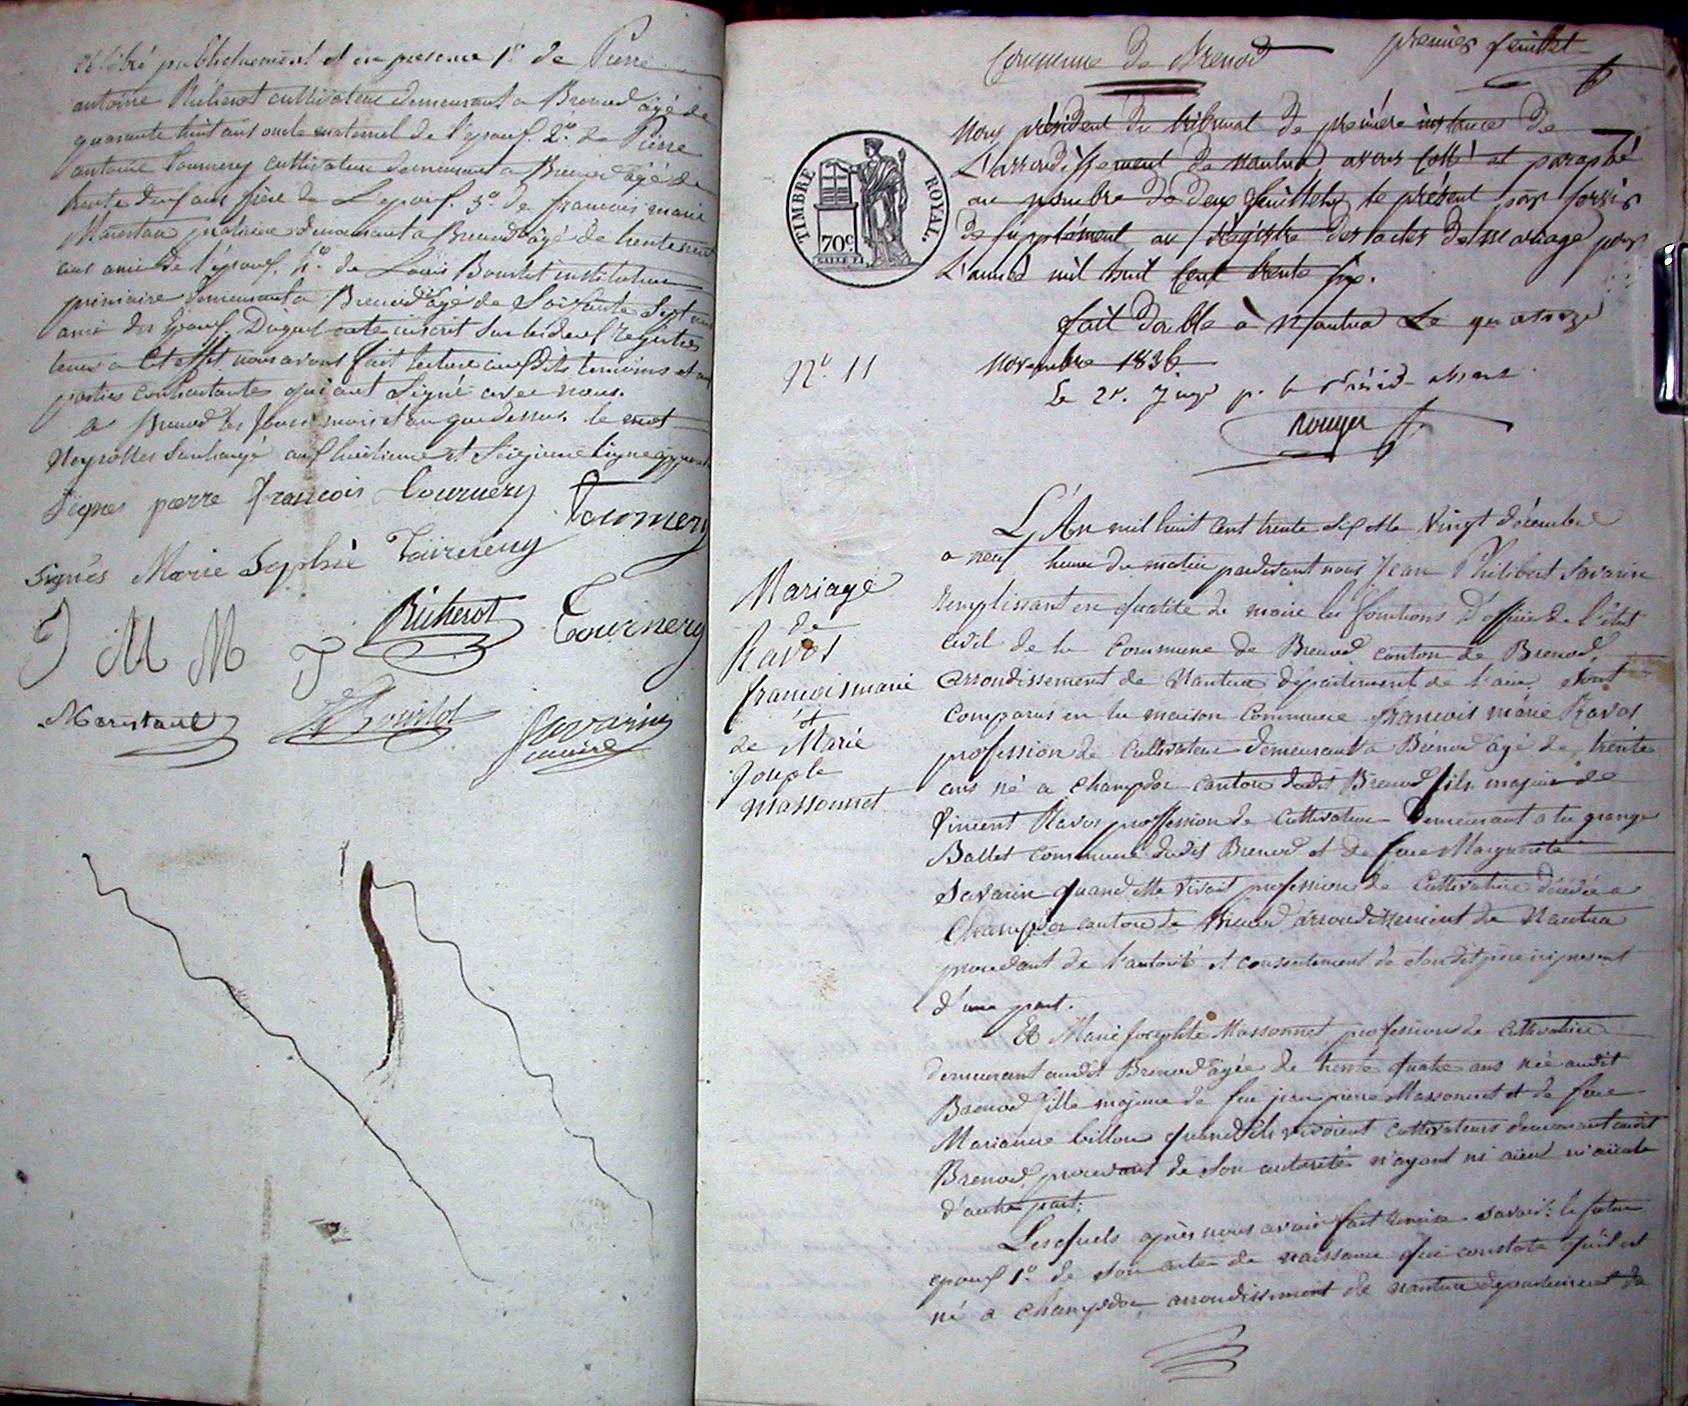 célébré publiquement et en presence 1º de Pierre
antoine Richerot cultivateur demeurant a Brenod âgé de
quarante huit ans oncle maternel de l'epouse. 2º de Pierre
antoine Tournery cultivateur demeurant a Brenod âgé de
trente deux ans frère de L'epoux. 3º de francois marie
demeurant a Brenod âgé de trente neuf
ans ami de l'épouse. 4º de Louis Bourlot instituteur
primaire demeurant a Brenod âgé de Soixante Sept ans
ami des Epoux. Duquel acte inscrit Sur les deux registres
tenus a Cet effet nous avons fait lecture auxdits temoins et aux
parties contractantes qui ont Signé avec nous.
a Brenod les Jours mois et an que dessus. le mot
huitieme et Seizieme ligne
Signés pierre françois Tournery Tournery
Signés Marie Sophie Tournery
J M M T Richerot Tournery
Maristand Bourlot Savarin
maire
Commune de Brenod premier feuillet
TIMBRE ROYAL.
70c
Nous président du tribunal de première instance de
L'arrondissement de Nantua avons Cotté et paraphé
au nombre de deux feuillets le présent pour servir
de supplément au Régistre des actes de Mariage pour
L'année mil huit Cent trente six.
fait double à Nantua Le quatorze
Novembre 1836.
Le 2e. Juge p. le Présid. absent.
Rouyer
Nº. 11
Mariage
de
Ravos
francois marie
et
de Marie
Josephe
Massonnet
L'An mil huit cent trente six et le Vingt décembre
a neuf heures du matin pardevant nous Jean Philibert Savarin
remplissant en qualité de maire les fonctions d'officier de l'état
civil de la Commune de Brenod canton de Brenod,
arrondissement de Nantua département de l'ain, sont
comparus en la maison commune francois marie Ravos
profession de Cultivateur demeurant a Brénod âgé de trente
ans né a Champdor canton dudit Brenod fils majeur de
Vincent Ravos profession de Cultivateur demeurant a la grange
Ballet commune dudit Brenod et de feue Marguerite
Savarin quand elle vivait profession de Cultivatrice décédée a
Champdor canton de Brenod arrondissement de Nantua
procedant de l'autorité et consentement de son dit père ici present
d'une part.
Et Marie Josephte Massonnet, profession de Cultivatrice
demeurant audit Brenod âgée de trente quatre ans née audit
Brenod fille majeure de feu jean pierre Massonnet et de feue
Marianne billon quand ils vivoient cultivateurs demeurant audit
Brenod, procedant de son autorité n'ayant ni aïeul ni aïeule
d'autre part;
Lesquels après nous avoir fait remise savoir: le futur
epoux 1º. de son acte de naissance qui constate qu'il est
né a Champdor, arrondissement de Nantua département de